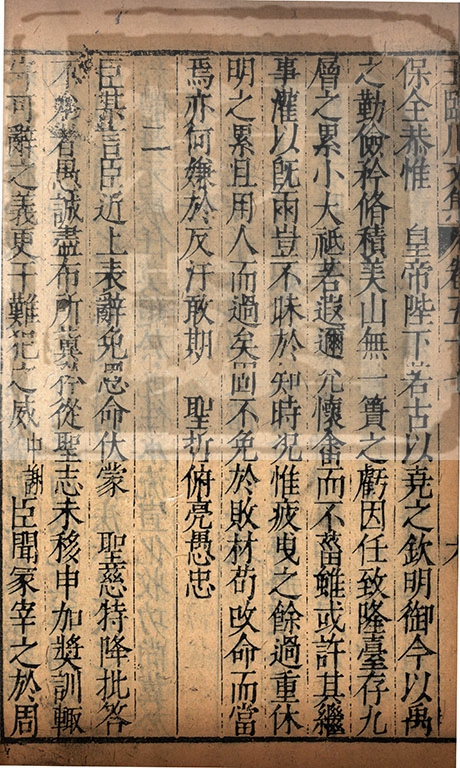 王臨川文集 卷五十七 六
保全恭惟 皇帝陛下若古以堯之欽明御今以禹
之勤儉矜脩積美山無一簣之虧因任致隆臺存九
層之累小大祗若遐邇允懷畬而不菑雖或許其繼
事摧以既雨豈不昧於知時況惟疲曳之餘過重休
明之累且用人而過矣固不免於敗材苟改命而當
焉亦何嫌於反汗敢期 聖哲俯亮愚忠
二
臣某言臣近上表辭免恩命伏蒙 聖慈特降批答
不允者愚誠盡布所冀聽從聖志未移申加獎訓輒
守可辭之義更干難犯之威 中謝 臣聞冢宰之於周